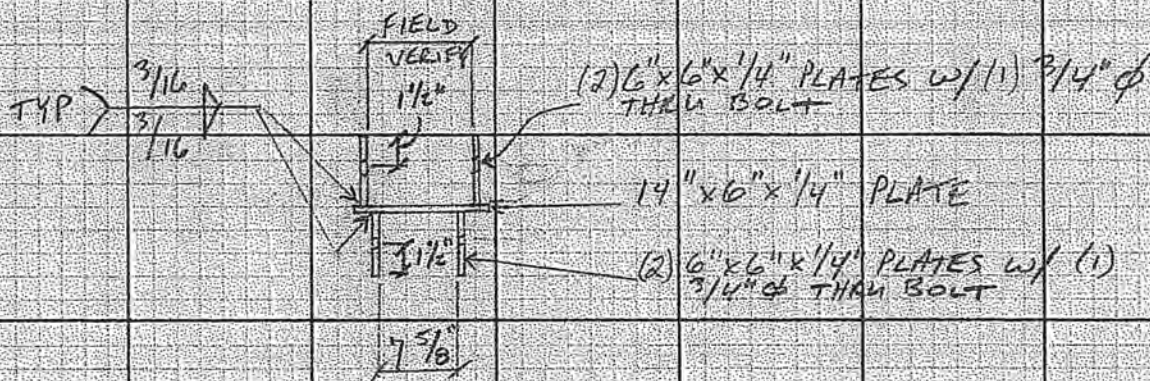 FIELD
VERIFY
3/16
TYP
3/16
1 1/2"
(2) 6" x 6" x 1/4" PLATES W/ (1) 3/4" φ
THRU BOLT
14" x 6" x 1/4" PLATE
1 1/2"
(2) 6" x 6" x 1/4" PLATES W/ (1)
3/4" φ THRU BOLT
7 5/8"